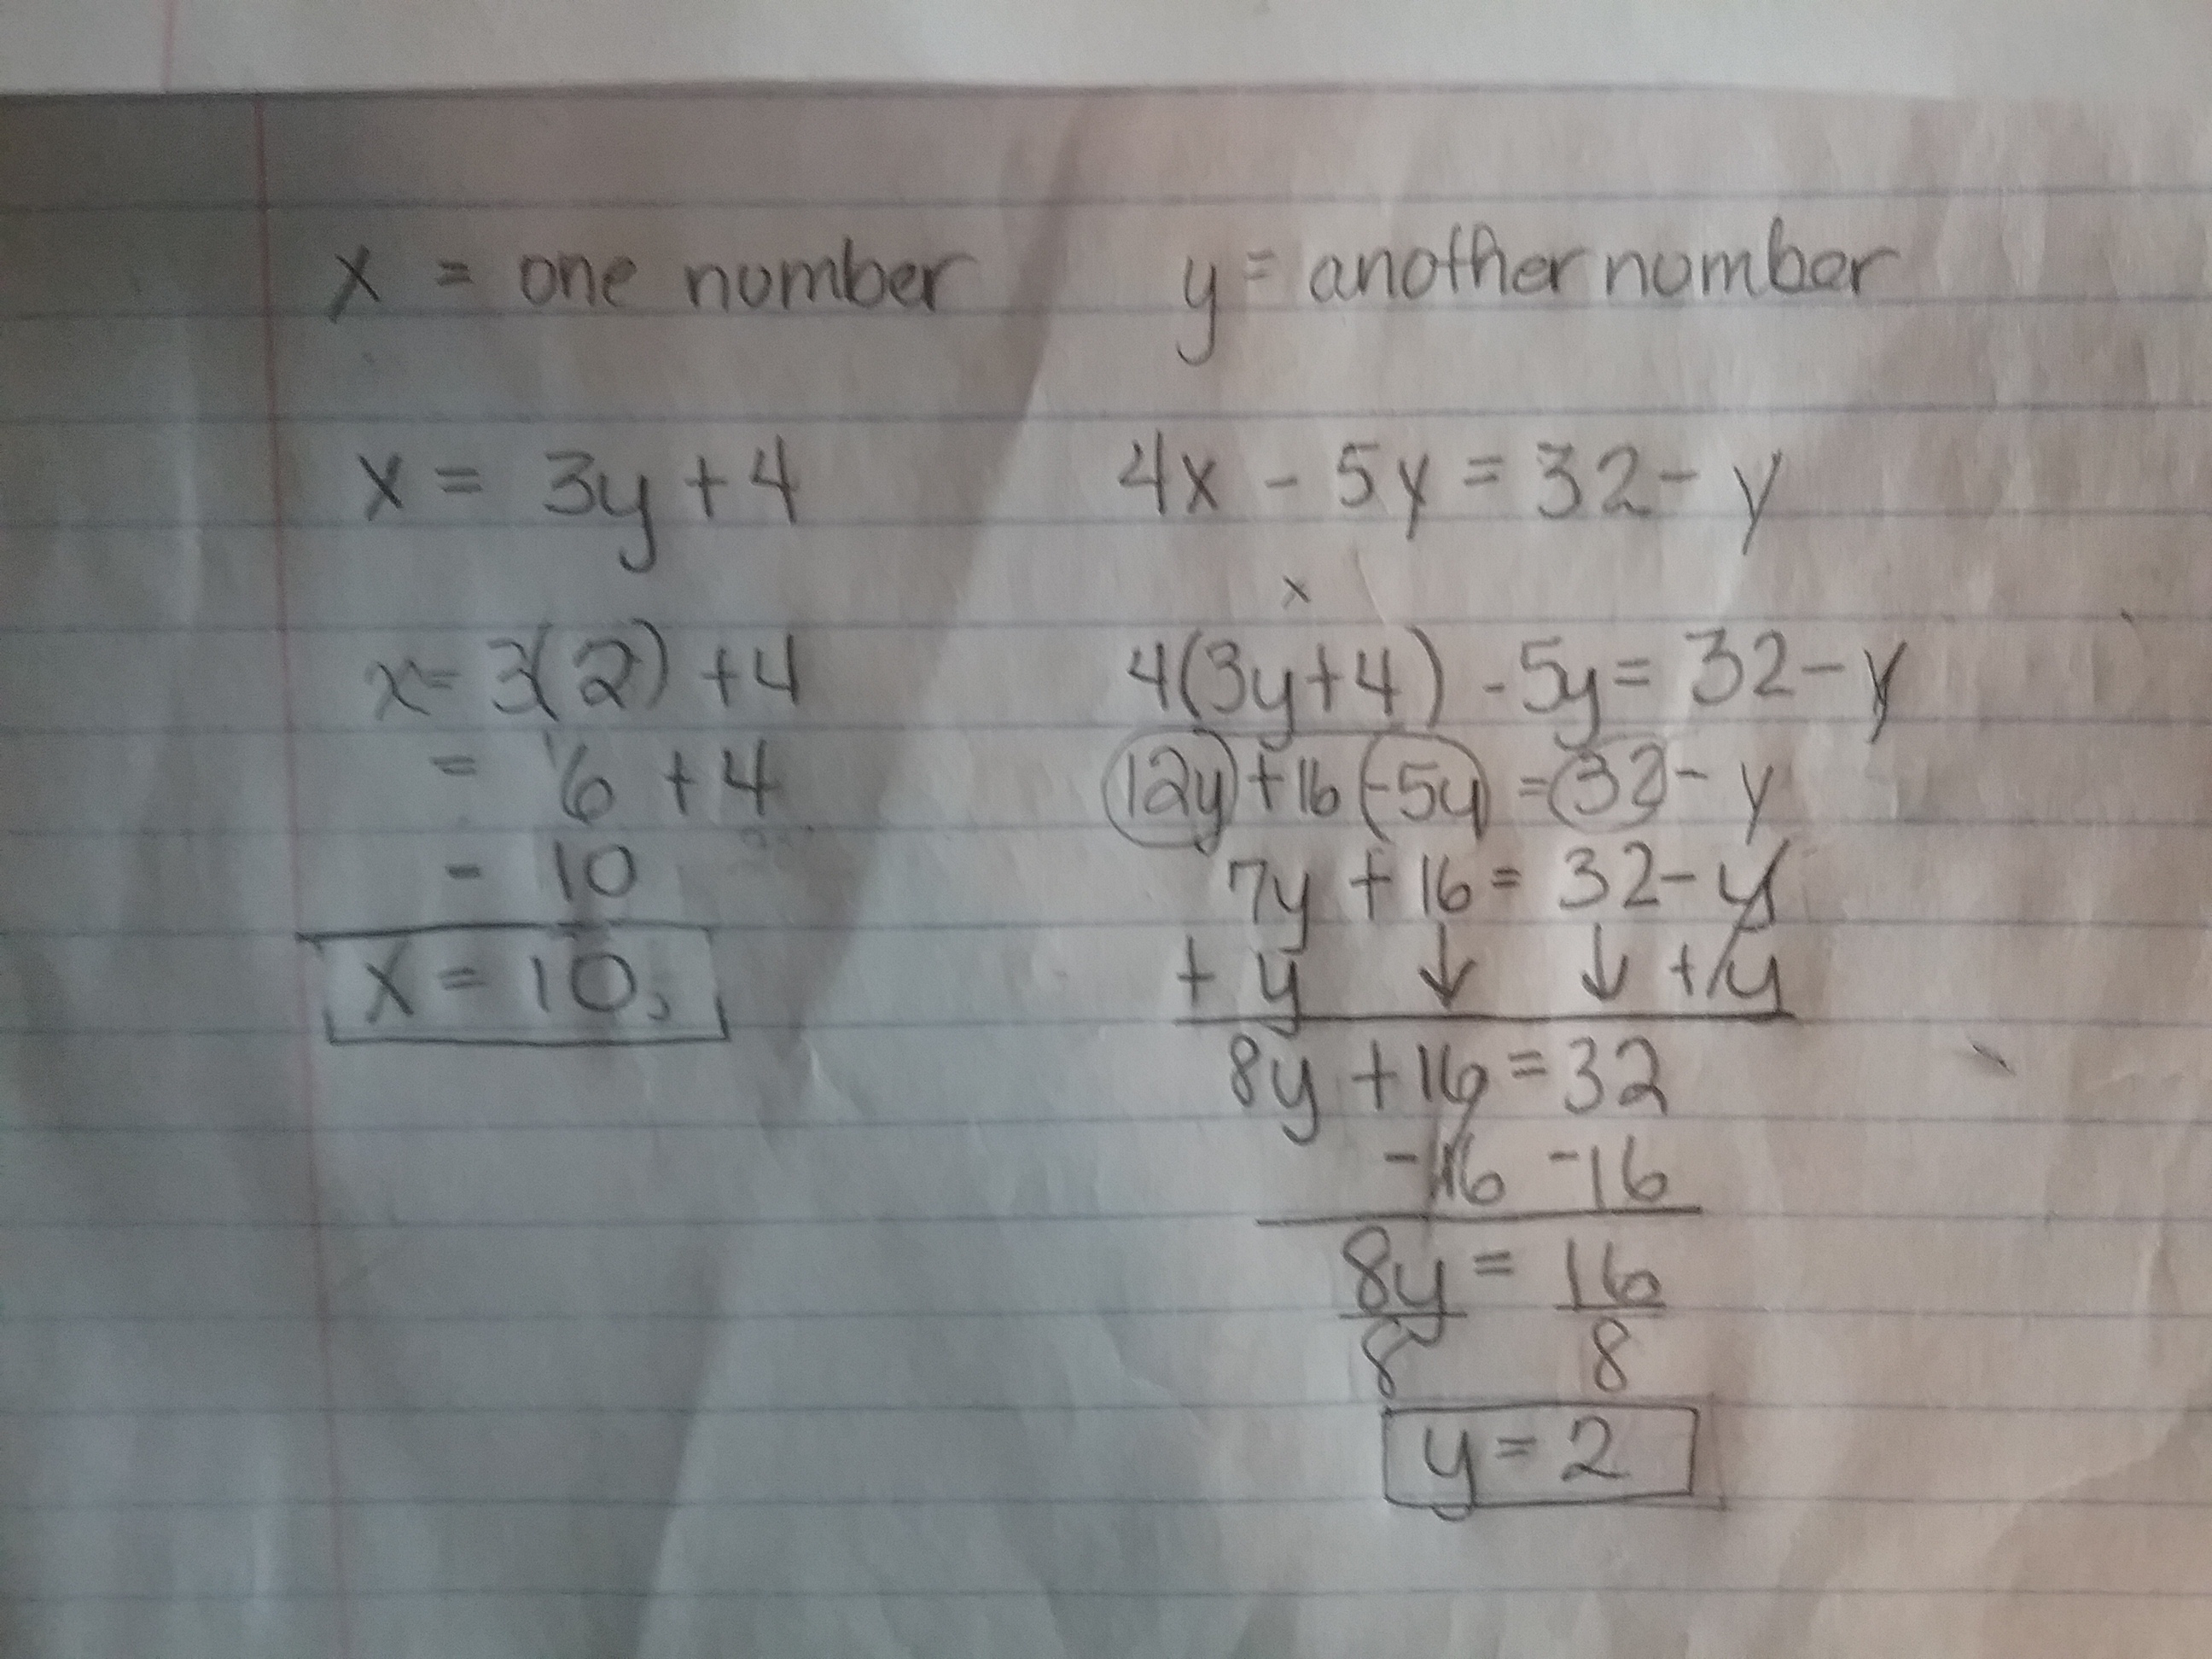 x = one number y = another number
x = 3y + 4 4x - 5y = 32 - y
x
x = 3(2) + 4 4(3y + 4) - 5y = 32 - y
= 6 + 4 12y + 16 - 5y = 32 - y
- 10 7y + 16 = 32 - y
+ y ↓ ↓ + y
x = 10, 8y + 16 = 32
- 16 - 16
8y = 16
8 8
y = 2